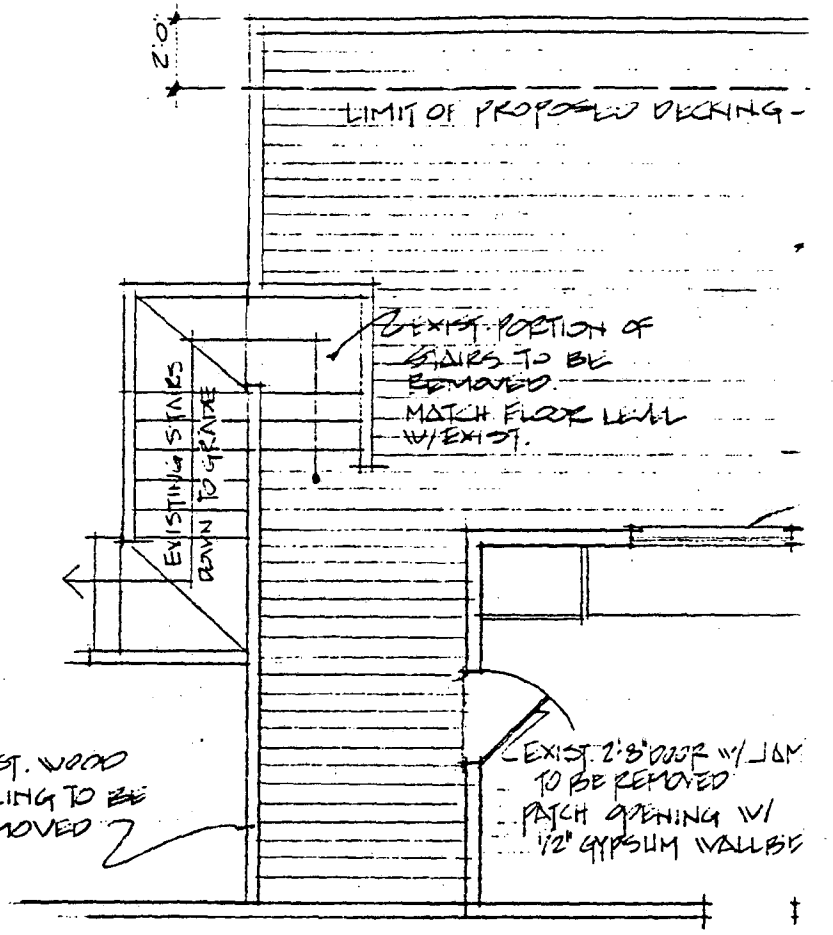 2'0"
LIMIT OF PROPOSED DECKING -
EXIST PORTION OF
STAIRS TO BE
REMOVED.
MATCH FLOOR LEVEL
W/ EXIST.
EXISTING STAIRS
DOWN TO GRADE
ST. WOOD
LING TO BE
MOVED
EXIST. 2'8" DOOR W/ JAM
TO BE REMOVED
PATCH OPENING W/
1/2" GYPSUM WALLBE